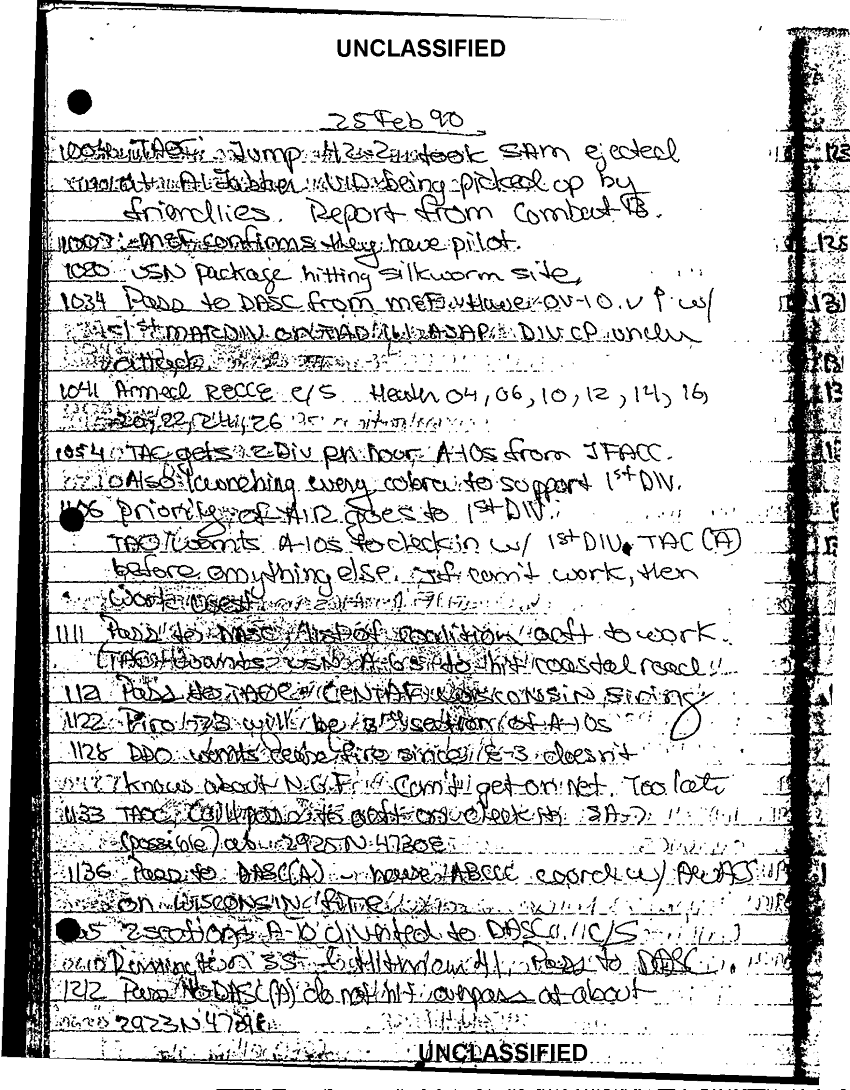 UNCLASSIFIED
25 Feb 90
1004 TAOC: Jump 42-2 took SAM ejected
at Al Jabber. V.I.D. being picked up by
friendlies. Report from Combat 13.
1007: MEF confirms they have pilot.
1020 USN package hitting silkworm site,
1034 Pass to DASC from MEF. Have OV-10 V P w/
1st MARDIV on TAD ASAP. DIV CP under
attack.
1041 Armed RECCE c/s Heath 04, 06, 10, 12, 14, 16,
20, 22, 24, 26
1054 TAC gets 2 Div pr hour A-10s from JFACC.
Also launching every cobra to support 1st DIV.
06 priority of AIR goes to 1st DIV.
TAO wants A-10s to check in w/ 1st DIV. TAC (A)
before anything else. If can't work, then
work west
1111 Pass to DASC, list of coalition acft to work.
(TAO wants USN A-6s to hit coastal road!!
1121 Pass to TAOC / CENTAF WISCONSIN firing
1122 Piro 523 will be 3rd section of A-10s
1128 DDO wants cease fire since E-3 doesn't
know about N.G.F. Can't get on net. Too late
1133 TAOC, pass to acft on check in SA-7
(possible) at 2925N 4730E
1136 Pass to DASC(A) - have ABCCC coord w/ AWACS
on WISCONSIN fire
5 2 sections A-10 diverted to DASC C/S
41, Pass to DASC.
1212 Pass to DASC(A) do not hit overpass at about
2923N
UNCLASSIFIED